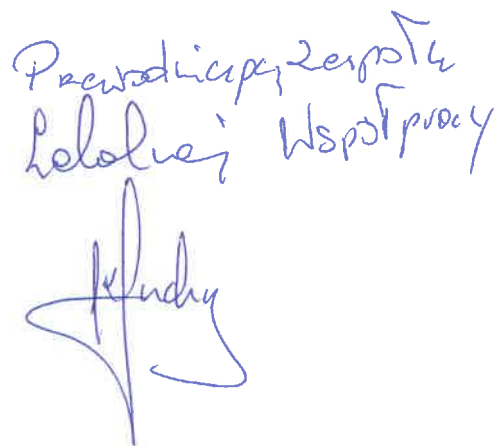 Przewodniczący Zespołu
Lokalnej Współpracy